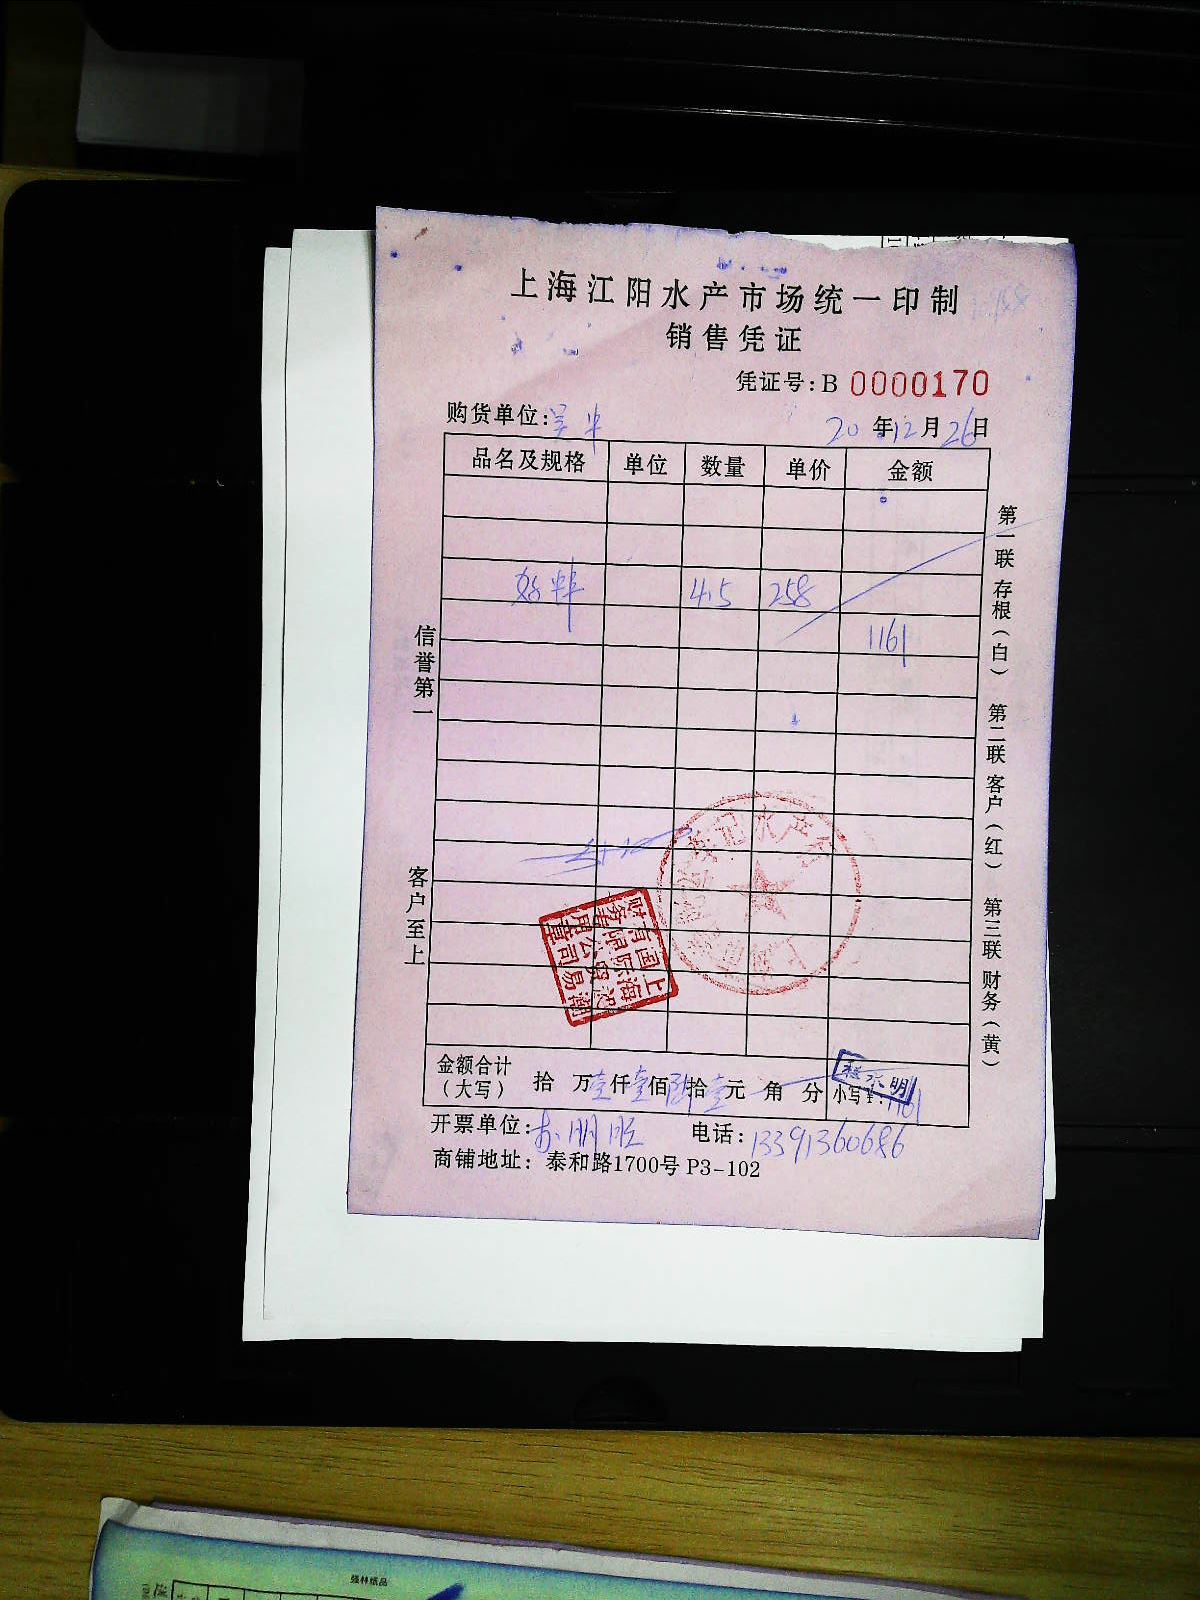 上海江阳水产市场统一印制
销售凭证
凭证号:B 0000170
购货单位:
20 年12月26日
品名及规格 单位 数量 单价 金额
4.5 258
1161
信誉第一
客户至上
第一联 存根(白) 第二联 客户(红) 第三联 财务(黄)
上海
国际贸易
有限公司
财务专用章
金额合计(大写) 拾 万壹仟壹佰陆拾壹元 角 分 小写¥:1161
开票单位: 电话:13391360686
商铺地址: 泰和路1700号 P3-102